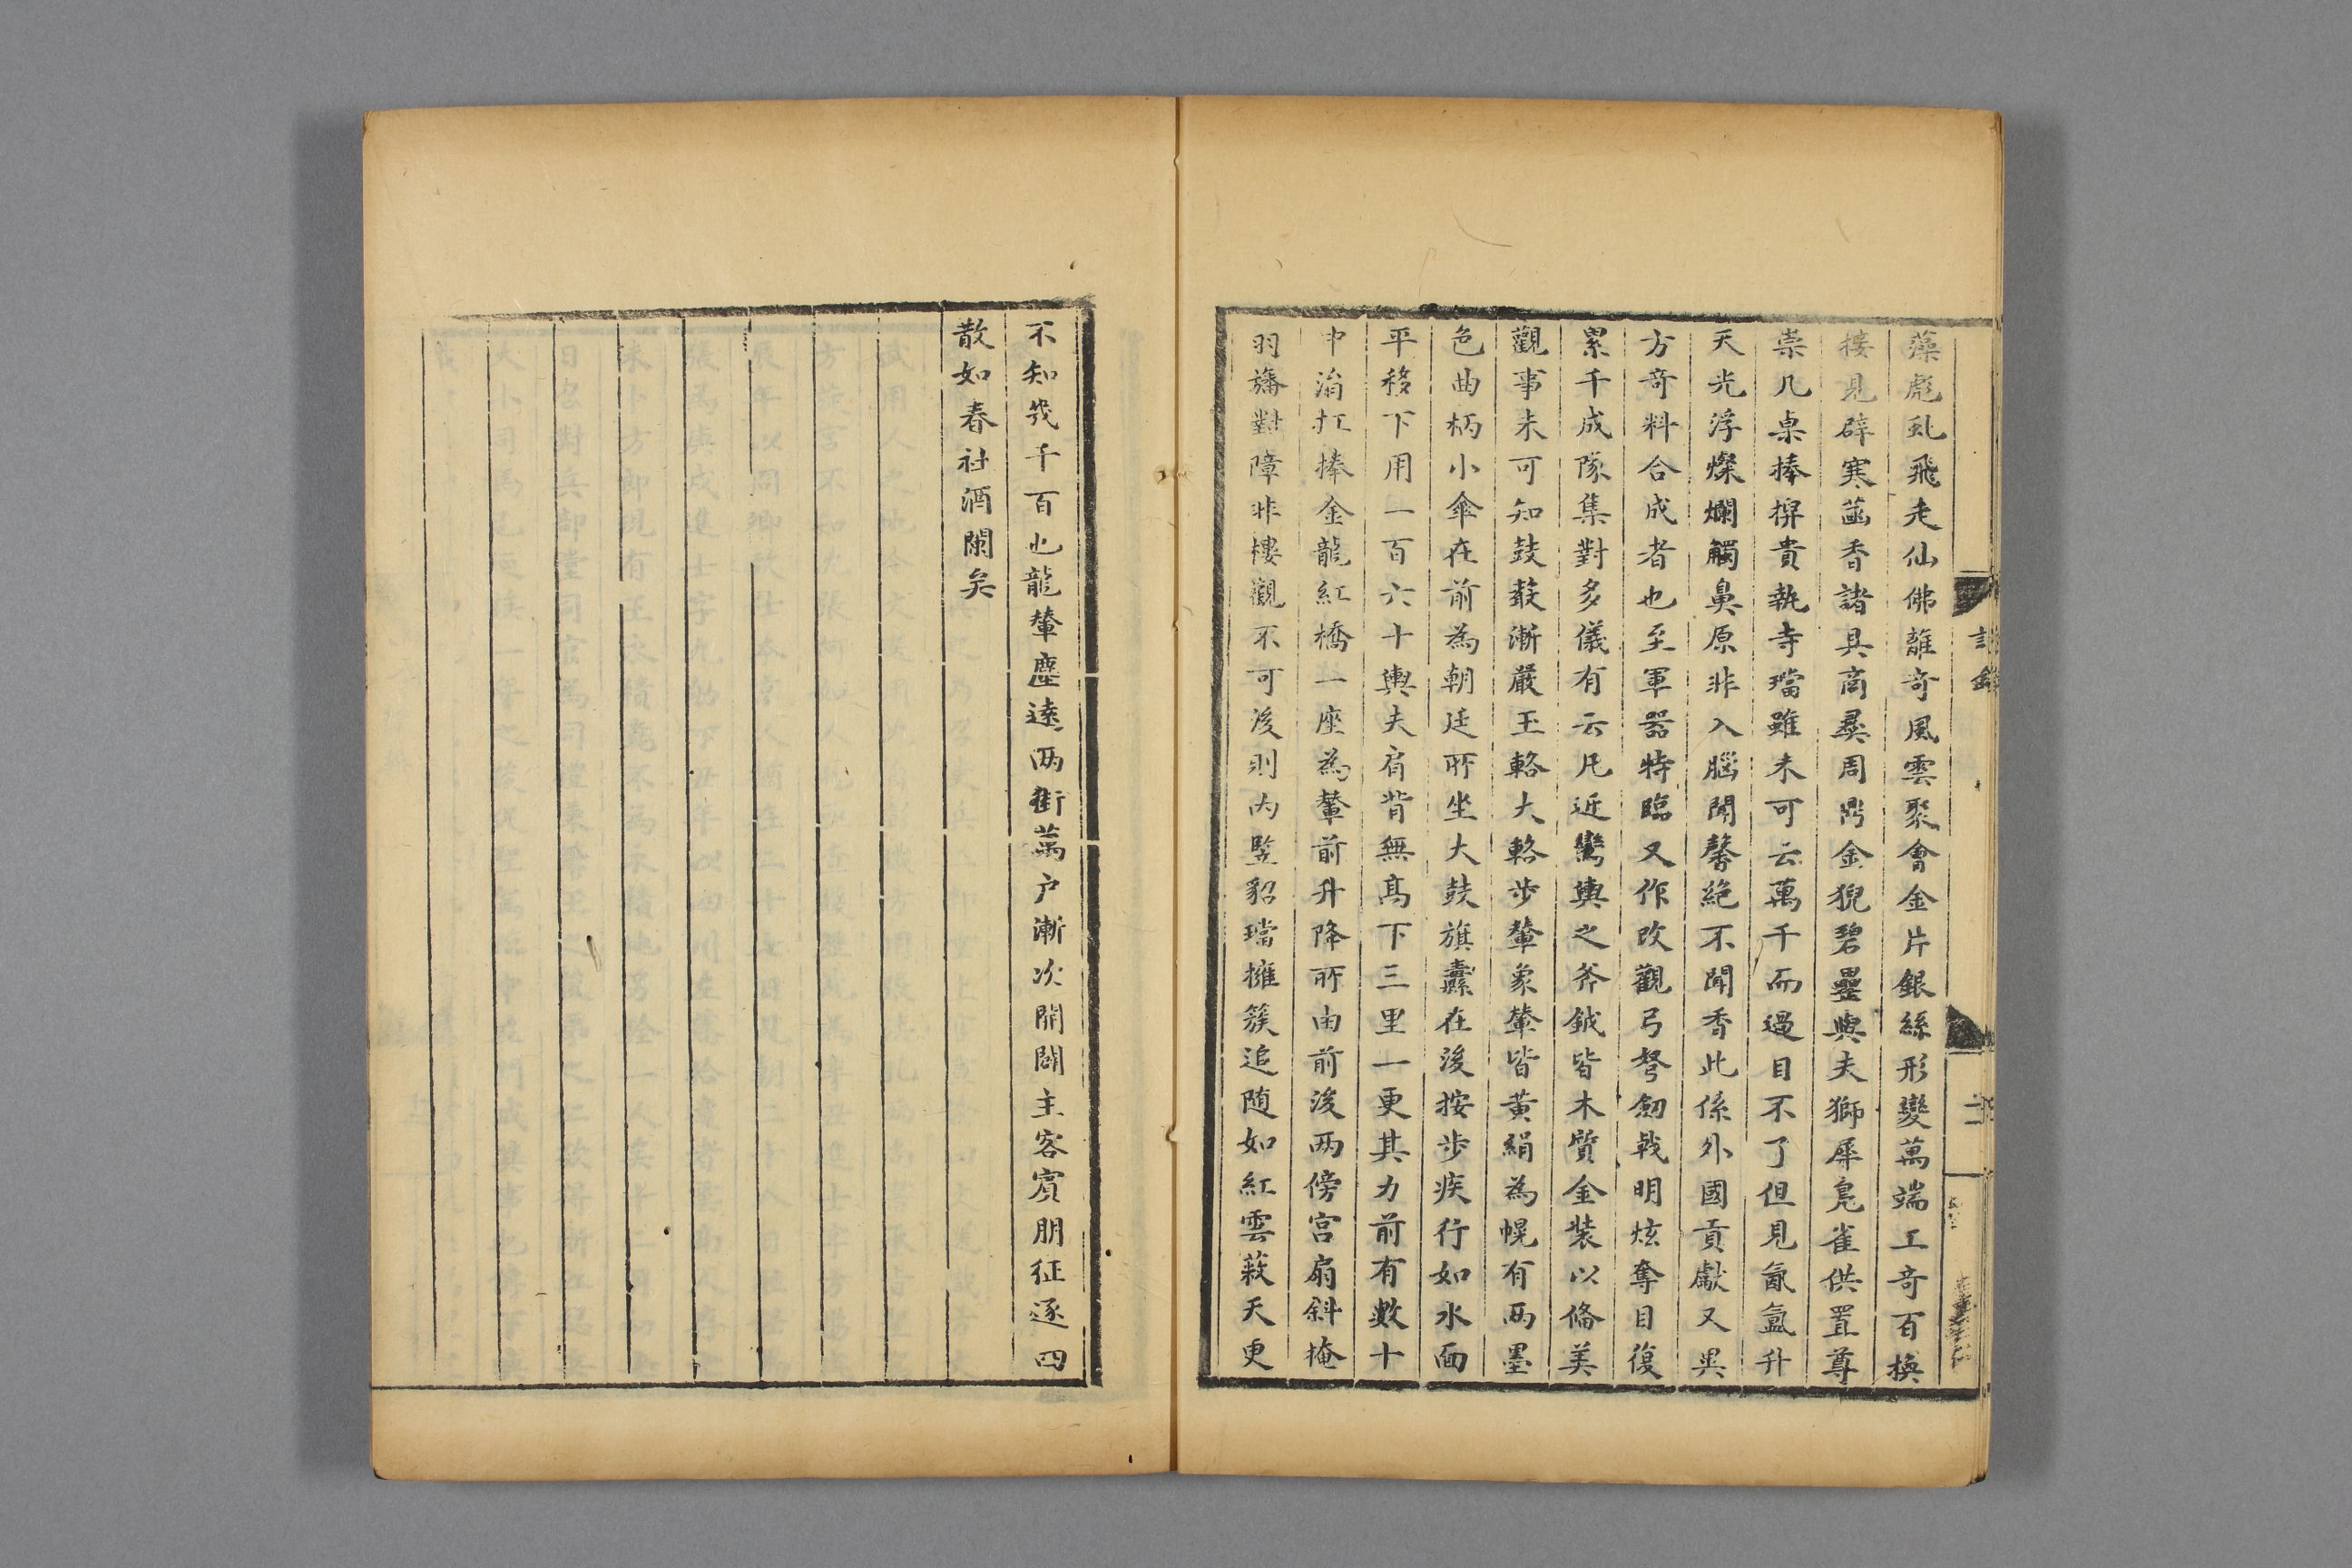 藻彪虬飛走仙佛離奇風雲聚會金片銀絲形變萬端工奇百換
接見辟寒菡香諸具商彞周鼎金猊碧罍與夫獅犀鳧雀供置尊
崇几桌捧擰貴執寺璫雖未可云萬千而過目不了但見氤氳升
天光浮燦爛觸鼻原非入腦聞馨絶不聞香此係外國貢獻又異
方奇料合成者也至軍器特臨又作改觀弓弩劒戟明炫奪目復
累千成隊集對多儀有云凡近鸞輿之斧鉞皆木質金裝以俻美
觀事未可知鼓鼗漸嚴玉輅大輅步輦象輦皆黄絹為幌有兩墨
色曲柄小傘在前為朝廷所坐大鼓旗纛在後按步疾行如水面
平移下用一百六十輿夫肩背無髙下三里一更其力前有數十
中涓扛捧金龍紅橋一座為輦前升降所由前後两傍宫扇斜掩
羽旛對障非樓觀不可後則内監貂璫擁簇追随如紅雲蔌天更
不知㡬千百也龍輦塵遠两街萬户漸次開闢主客賓朋征逐四
散如春社酒闌矣